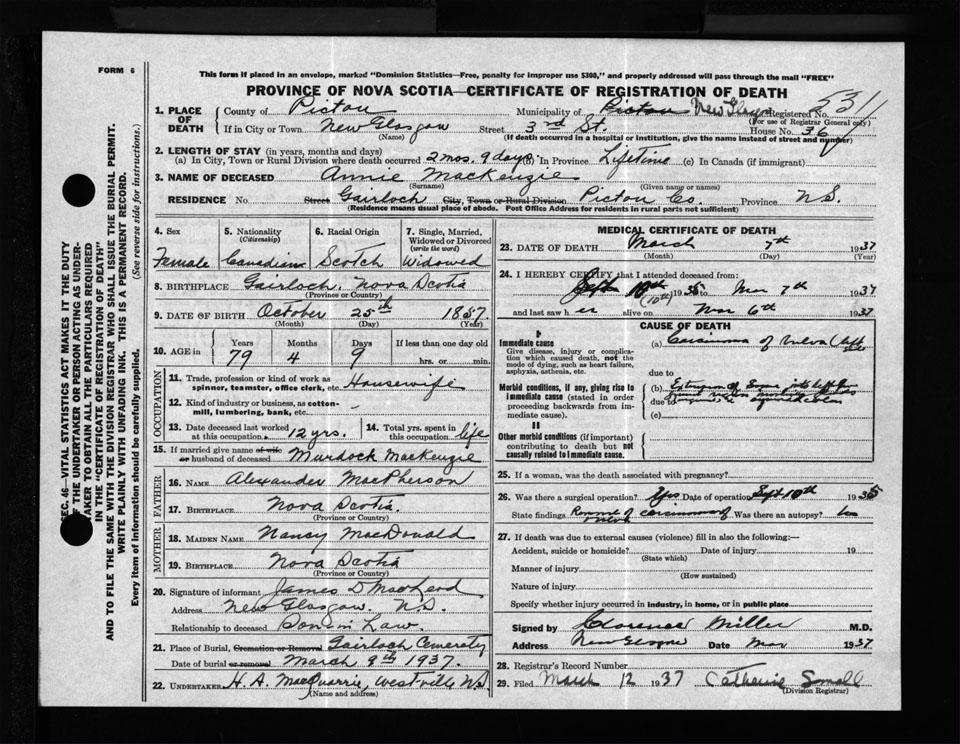 FORM 6
This form if placed in an envelope, marked "Dominion Statistics—Free, penalty for improper use $300," and properly addressed will pass through the mail "FREE"
PROVINCE OF NOVA SCOTIA—CERTIFICATE OF REGISTRATION OF DEATH
1. PLACE OF DEATH
County of Pictou Municipality of Pictou New Glasgow Registered No. 531
(For use of Registrar General only)
If in City or Town New Glasgow Street 3rd St. House No. 36
(Name) (If death occurred in a hospital or institution, give the name instead of street and number)
2. LENGTH OF STAY (in years, months and days)
(a) In City, Town or Rural Division where death occurred 2 mos. 9 days (b) In Province Lifetime (c) In Canada (if immigrant)
3. NAME OF DECEASED Annie MacKenzie
(Surname) (Given name or names)
RESIDENCE No. Street Gairloch City, Town or Rural Division Pictou Co. Province N.S.
(Residence means usual place of abode. Post Office Address for residents in rural parts not sufficient)
4. Sex
Female
5. Nationality
(Citizenship)
Canadian
6. Racial Origin
Scotch
7. Single, Married, Widowed or Divorced
(write the word)
Widowed
8. BIRTHPLACE Gairloch. Nova Scotia
(Province or Country)
9. DATE OF BIRTH October 25th 1857
(Month) (Day) (Year)
10. AGE in Years Months Days If less than one day old
79 4 9 hrs. or min.
OCCUPATION
11. Trade, profession or kind of work as
spinner, teamster, office clerk, etc. Housewife
12. Kind of industry or business, as cotton-
mill, lumbering, bank, etc. -
13. Date deceased last worked
at this occupation 12 yrs.
14. Total yrs. spent in
this occupation life
15. If married give name of wife
or husband of deceased Murdock MacKenzie
FATHER
16. NAME Alexander MacPherson
17. BIRTHPLACE Nova Scotia
(Province or Country)
MOTHER
18. MAIDEN NAME Nancy MacDonald
19. BIRTHPLACE Nova Scotia
(Province or Country)
20. Signature of informant James D
Address New Glasgow. N.S.
Relationship to deceased Son in Law.
21. Place of Burial, Cremation or Removal Gairloch Cemeraty
Date of burial or removal March 9th 1937.
22. UNDERTAKER H. A. MacQuarrie, Westville N.S.
(Name and address)
MEDICAL CERTIFICATE OF DEATH
23. DATE OF DEATH March 7th 1937
(Month) (Day) (Year)
24. I HEREBY CERTIFY that I attended deceased from:
Sept 10th (10th) 1935 to Mar 7th 1937
and last saw her alive on Mar 6th 1937
CAUSE OF DEATH
I
Immediate cause
Give disease, injury or complica-
tion which caused death, not the
mode of dying, such as heart failure,
asphyxia, asthenia, etc.
(a) Carcinoma of vulva (left
due to
Morbid conditions, if any, giving rise to
immediate cause (stated in order
proceeding backwards from im-
mediate cause).
(b) Extension of same into left
due to
(c)
II
Other morbid conditions (if important)
contributing to death but not
causally related to immediate cause.
25. If a woman, was the death associated with pregnancy?
26. Was there a surgical operation? Yes Date of operation Sept 10th 1935
State findings Removal of carcinoma of vulva Was there an autopsy? No
27. If death was due to external causes (violence) fill in also the following:—
Accident, suicide or homicide? Date of injury 19
(State which)
Manner of injury
(How sustained)
Nature of injury
Specify whether injury occurred in industry, in home, or in public place
Signed by Clarence Miller M.D.
Address New Glasgow Date Mar 1937
28. Registrar's Record Number
29. Filed March 12 1937 Catherine Small
(Division Registrar)
SEC. 46—VITAL STATISTICS ACT MAKES IT THE DUTY
OF THE UNDERTAKER OR PERSON ACTING AS UNDER-
TAKER TO OBTAIN ALL THE PARTICULARS REQUIRED
IN THE "CERTIFICATE OF REGISTRATION OF DEATH"
AND TO FILE THE SAME WITH THE DIVISION REGISTRAR WHO SHALL ISSUE THE BURIAL PERMIT.
WRITE PLAINLY WITH UNFADING INK. THIS IS A PERMANENT RECORD.
Every item of information should be carefully supplied. (See reverse side for instructions.)